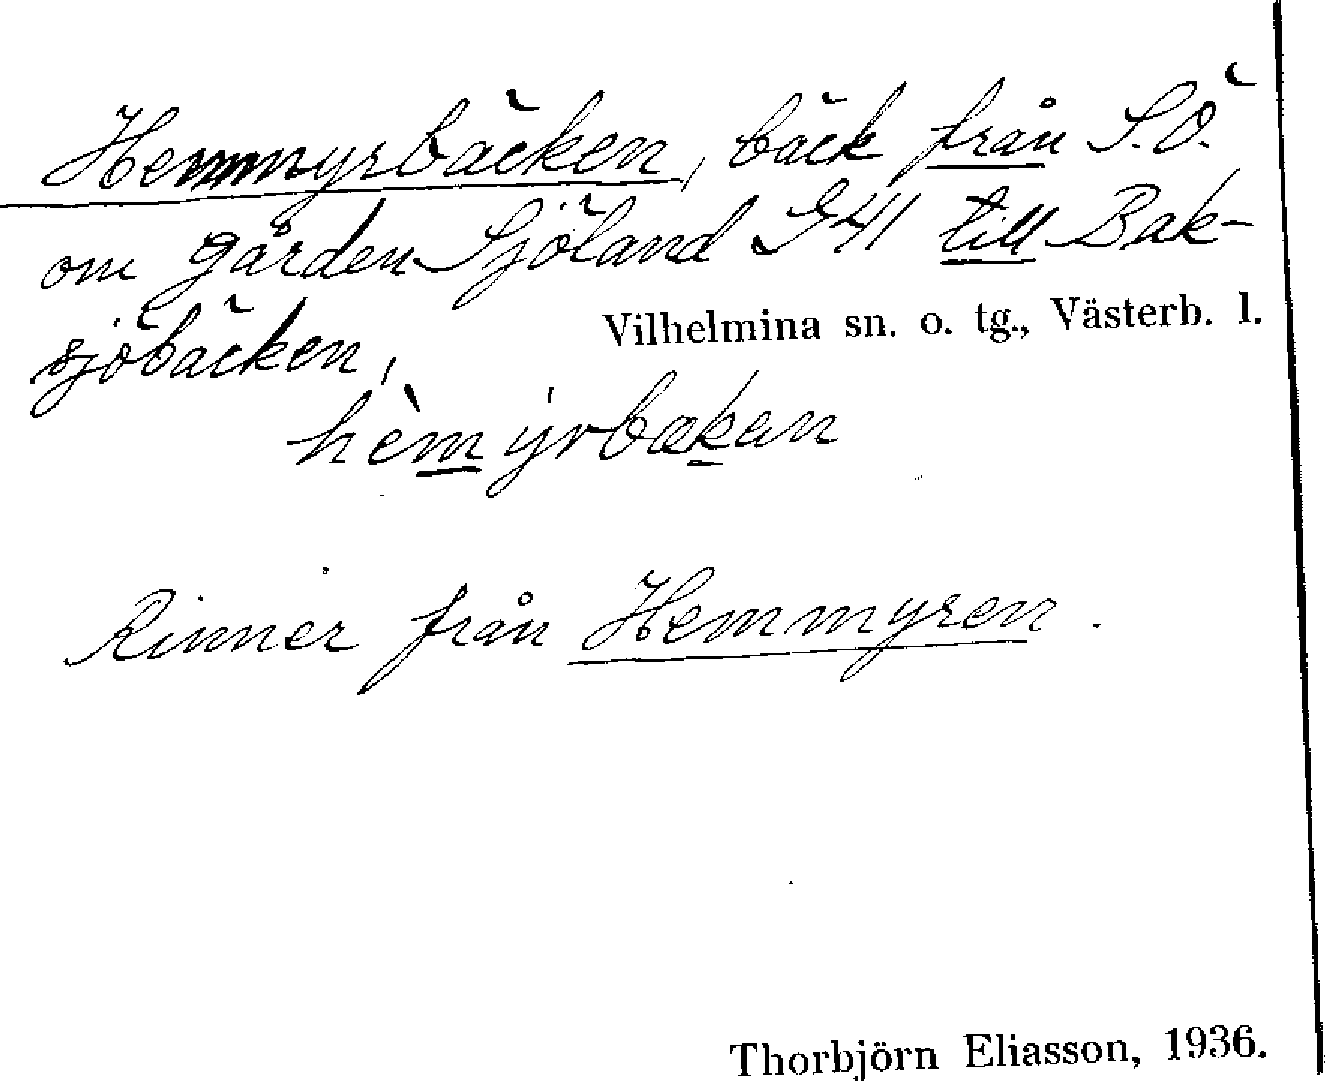 Hemmyrbäcken, bäck från S.Ö.
om gården Sjöland S41 till Bak-
sjöbäcken,
Vilhelmina sn. o. tg., Västerb. l.
hèmýrbækan
Rinner från Hemmyren.
Thorbjörn Eliasson, 1936.